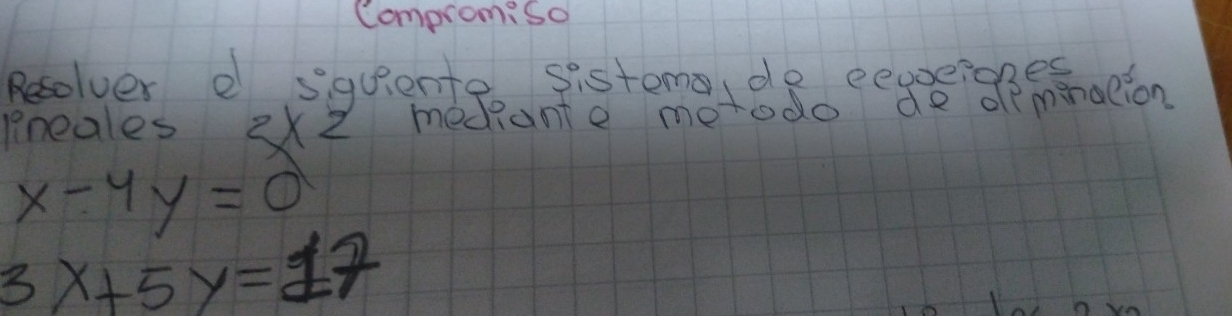 Compromiso
Resolver el siguiente sistema de ecuaciones
lineales 2x2 mediante metodo de eliminación
x-4y=0
3x+5y=17